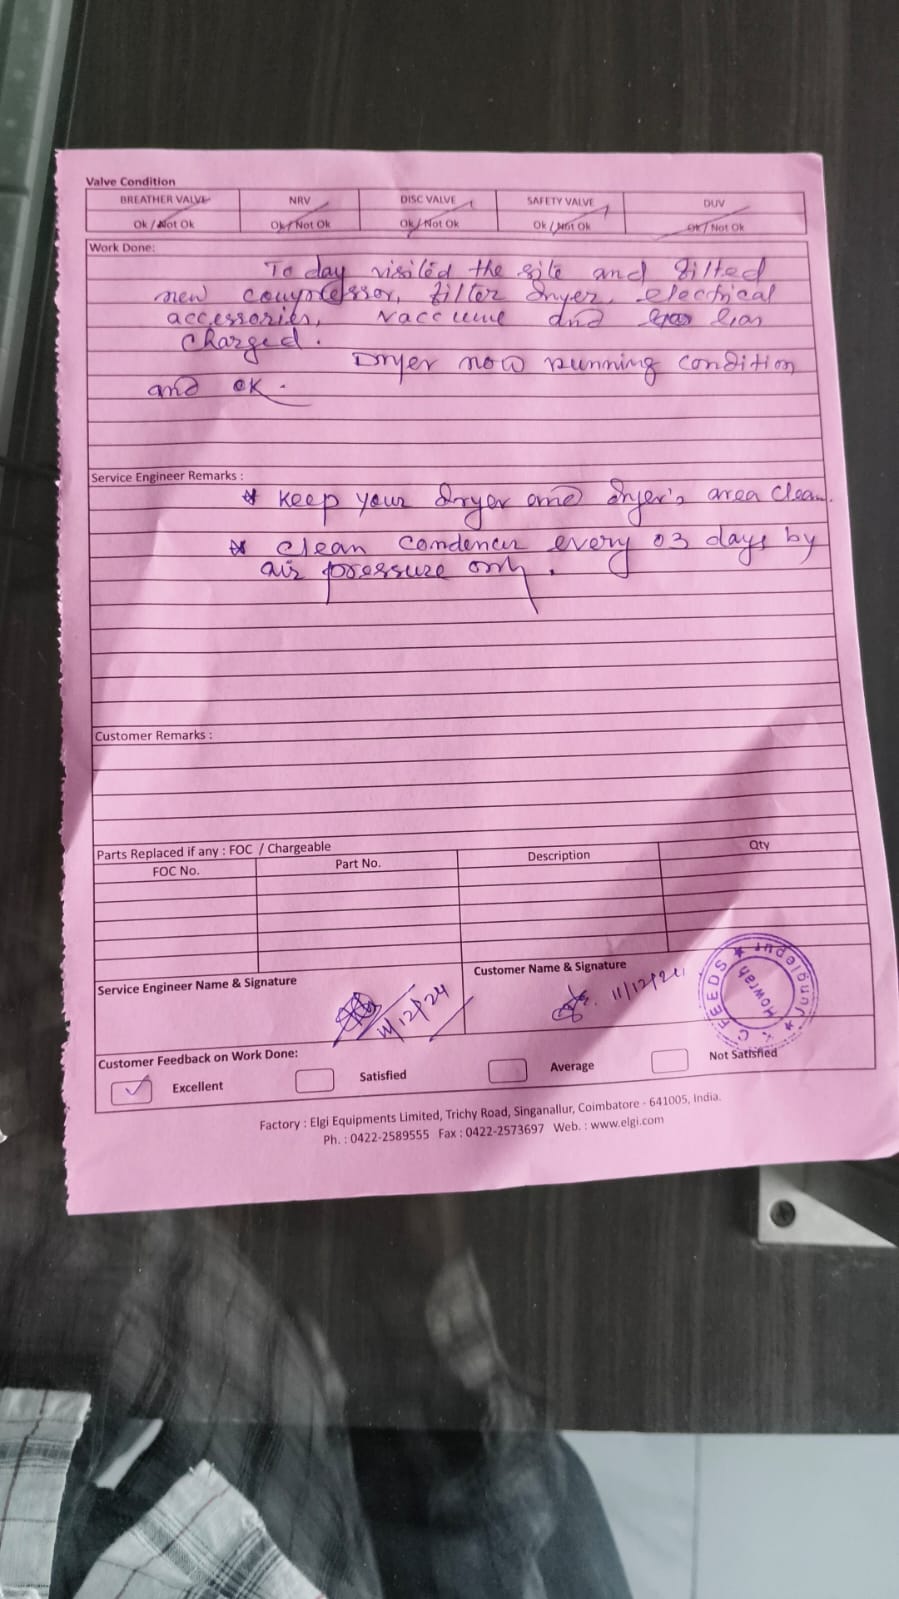 Valve Condition
BREATHER VALVE NRV DISC VALVE SAFETY VALVE DUV
Ok / Not Ok Ok / Not Ok Ok / Not Ok Ok / Not Ok Ok / Not Ok
Work Done:
To day visited the site and fitted
new compressor, filter dryer, electrical
accessories, vaccume and gas
charged.
Dryer now running condition
and ok.
Service Engineer Remarks :
* Keep your dryer and dryer's area clean.
* clean condencer every 03 days by
air pressure only.
Customer Remarks :
Parts Replaced if any : FOC / Chargeable
FOC No. Part No. Description Qty
Service Engineer Name & Signature
11/12/24
Customer Name & Signature
11/12/24
FEEDS
Howrah
Customer Feedback on Work Done:
✓ Excellent Satisfied Average Not Satisfied
Factory : Elgi Equipments Limited, Trichy Road, Singanallur, Coimbatore - 641005, India.
Ph. : 0422-2589555 Fax : 0422-2573697 Web. : www.elgi.com